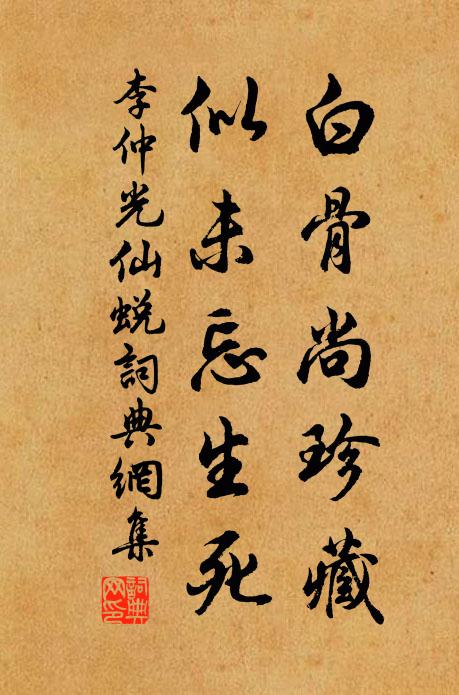 白骨尚珍藏
似未忘生死
李仲光仙蜕詞典網集
詞典网印